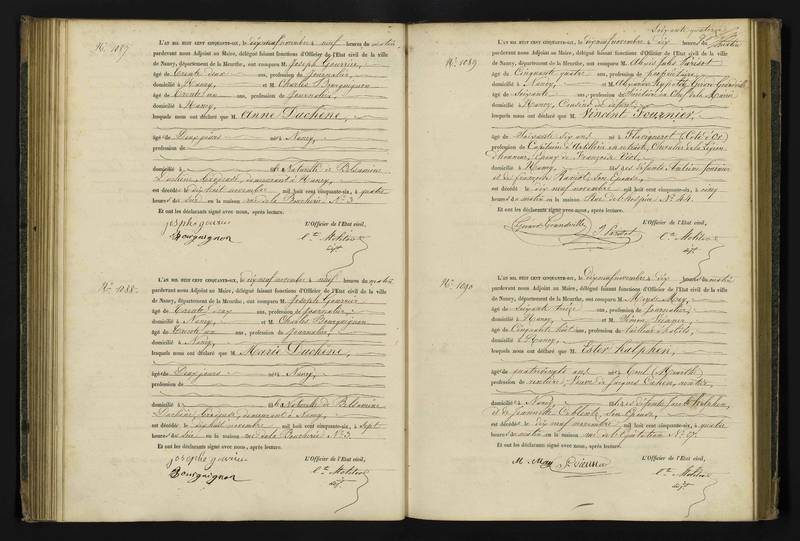 N.° 1087
L'AN MIL HUIT CENT CINQUANTE-SIX, le dix neuf novembre à neuf heures du matin
pardevant nous Adjoint au Maire, délégué faisant fonctions d'Officier de l'État civil de la ville
de Nancy, département de la Meurthe, ont comparu M. Joseph Gourrier,
âgé de trente deux ans, profession de journalier,
domicilié à Nancy, et M. Charles Bourguignon
âgé de trente un ans, profession de journalier,
domicilié à Nancy,
lesquels nous ont déclaré que M. Anne Duchêne,
âgé de Deux jours né à Nancy,
profession de
domicilié à fille Naturelle de Belsamine
Duchêne, demeurant à Nancy,
est décédé le dix huit novembre mil huit cent cinquante-six, à quatre
heures du soir en la maison rue de la Boucherie N.° 3.
Et ont les déclarants signé avec nous, après lecture.
josephe gourier
Bourguignon
L'Officier de l'État civil,
N.° 1088
L'AN MIL HUIT CENT CINQUANTE-SIX, le dix neuf novembre à neuf heures du matin
pardevant nous Adjoint au Maire, délégué faisant fonctions d'Officier de l'État civil de la ville
de Nancy, département de la Meurthe, ont comparu M. Joseph Gourrier
âgé de trente deux ans, profession de journalier,
domicilié à Nancy, et M. Charles Bourguignon
âgé de trente un ans, profession de journalier,
domicilié à Nancy,
lesquels nous ont déclaré que M. Marie Duchêne,
âgé de Deux jours né à Nancy,
profession de
domicilié à fille Naturelle de Belsamine
Duchêne, demeurant à Nancy,
est décédé le dix huit novembre mil huit cent cinquante-six, à sept
heures du soir en la maison rue de la Boucherie N.° 3.
Et ont les déclarants signé avec nous, après lecture.
josephe gourier
Bourguignon
L'Officier de l'État civil,
N.° 1089
L'AN MIL HUIT CENT CINQUANTE-SIX, le dix neuf novembre à dix heures du matin
pardevant nous Adjoint au Maire, délégué faisant fonctions d'Officier de l'État civil de la ville
de Nancy, département de la Meurthe, ont comparu M. Jules Parisot
âgé de Cinquante quatre ans, profession de propriétaire,
domicilié à Nancy, et M.
âgé de Soixante ans, profession de Secrétaire en Chef de la Mairie
domicilié à Nancy, Cousins du défunt,
lesquels nous ont déclaré que M. Vincent Fournier,
âgé de Soixante dix ans né à (Côte d'Or)
profession de Capitaine d'Artillerie en retraite, Chevalier de la Légion
d'honneur, Epoux de Françoise
domicilié à Nancy, fils des défunts Antoine Fournier
et de Françoise son Epouse,
est décédé le dix neuf novembre mil huit cent cinquante-six, à cinq
heures du matin en la maison Rue de l'hospice N.° 44.
Et ont les déclarants signé avec nous, après lecture.
L'Officier de l'État civil,
N.° 1090
L'AN MIL HUIT CENT CINQUANTE-SIX, le dix neuf novembre à dix heures du matin
pardevant nous Adjoint au Maire, délégué faisant fonctions d'Officier de l'État civil de la ville
de Nancy, département de la Meurthe, ont comparu M. May,
âgé de Soixante treize ans, profession de journalier,
domicilié à Nancy, et M.
âgé de Cinquante huit ans, profession de tailleur d'habits,
domicilié à Nancy,
lesquels nous ont déclaré que M. Ester halphen,
âgé de quatre vingts ans né à (Meurthe)
profession de rentière, Veuve de Jacques Cahen, rentier,
domicilié à Nancy, fille des défunts halphen,
et de Jeannette son Epouse,
est décédé le dix neuf novembre mil huit cent cinquante-six, à quatre
heures du matin en la maison rue de l'Equitation N.°
Et ont les déclarants signé avec nous, après lecture.
L'Officier de l'État civil,